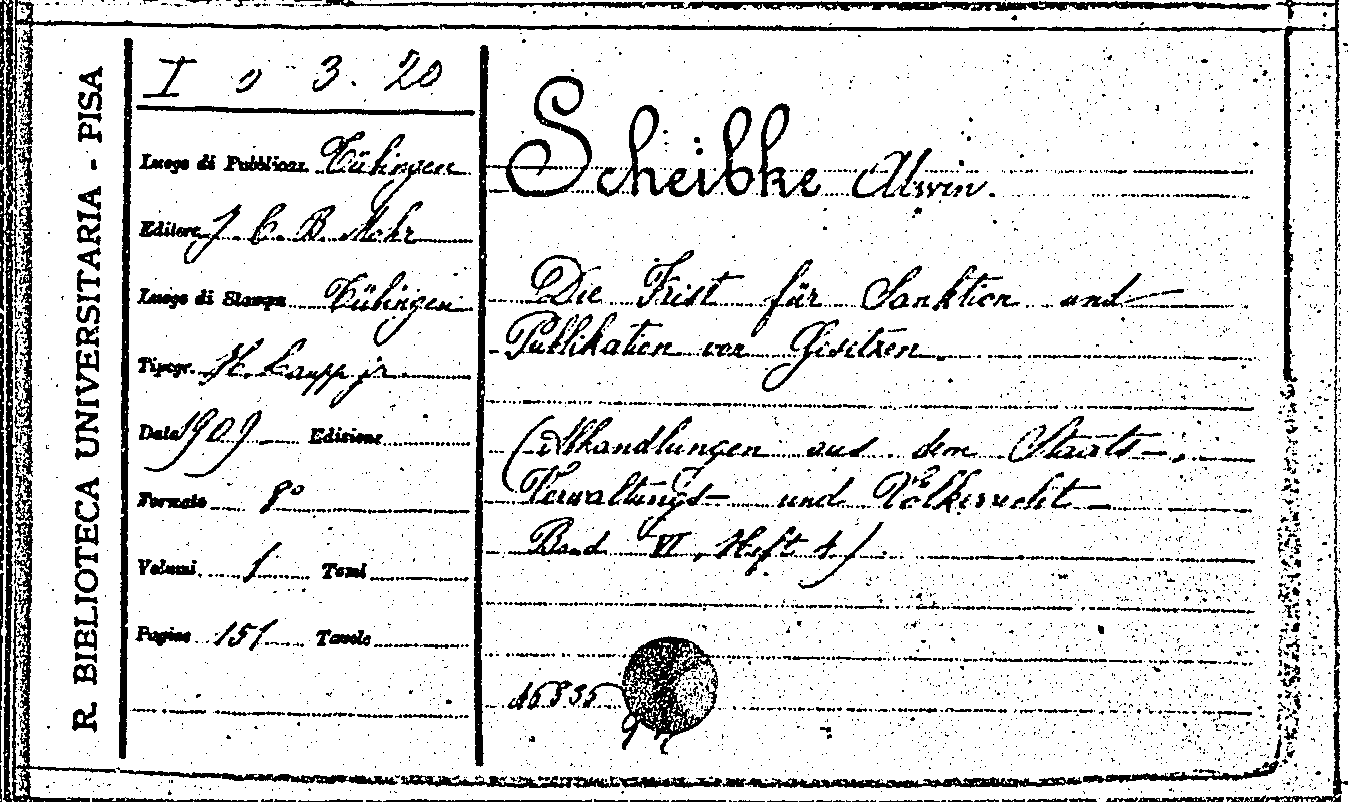 R. BIBLIOTECA UNIVERSITARIA - PISA
I o 3. 20
Luogo di Pubblicaz. Tübingen
Editore J. C. B. Mohr
Luogo di Stampa Tübingen
Tipogr. H. Laupp jr.
Data 1909 Edizione
Formato 8°
Volumi 1 Tomi
Pagine 151 Tavole
Scheibke Alwin.
Die Frist für Sanktion und
Publikation von Gesetzen.
(Abhandlungen aus dem Staats-,
Verwaltungs- und Völkerrecht-
Band VI, Heft 4)